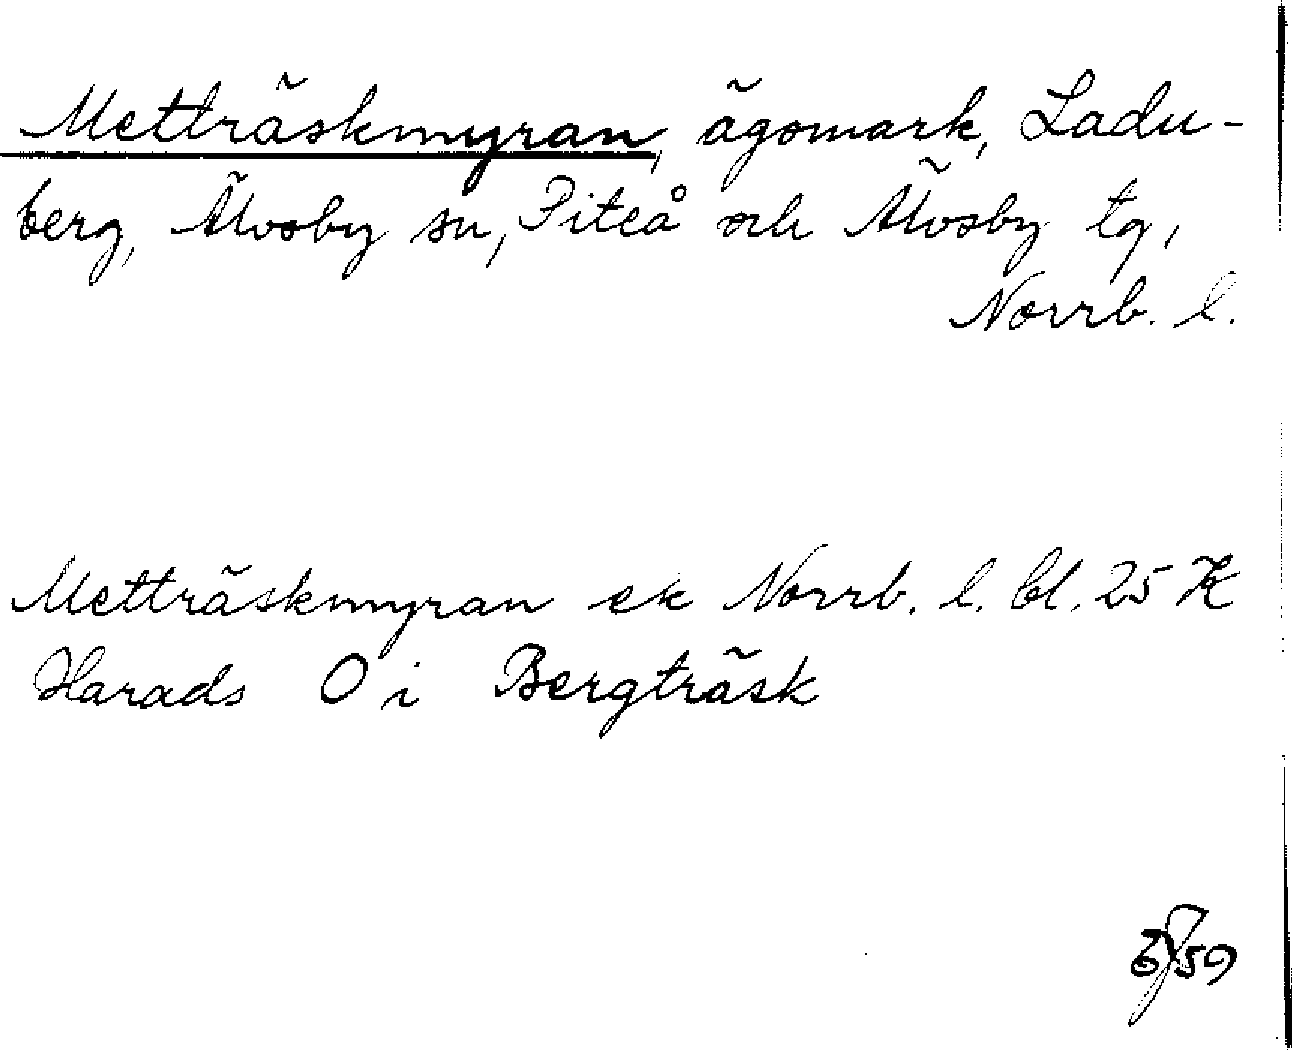 Metträskmyran, ägomark, Ladu-
berg, Älvsby sn, Piteå och Älvsby tg,
Norrb. l.
Metträskmyran ek Norrb. l. bl. 25 K
Harads O i Bergträsk